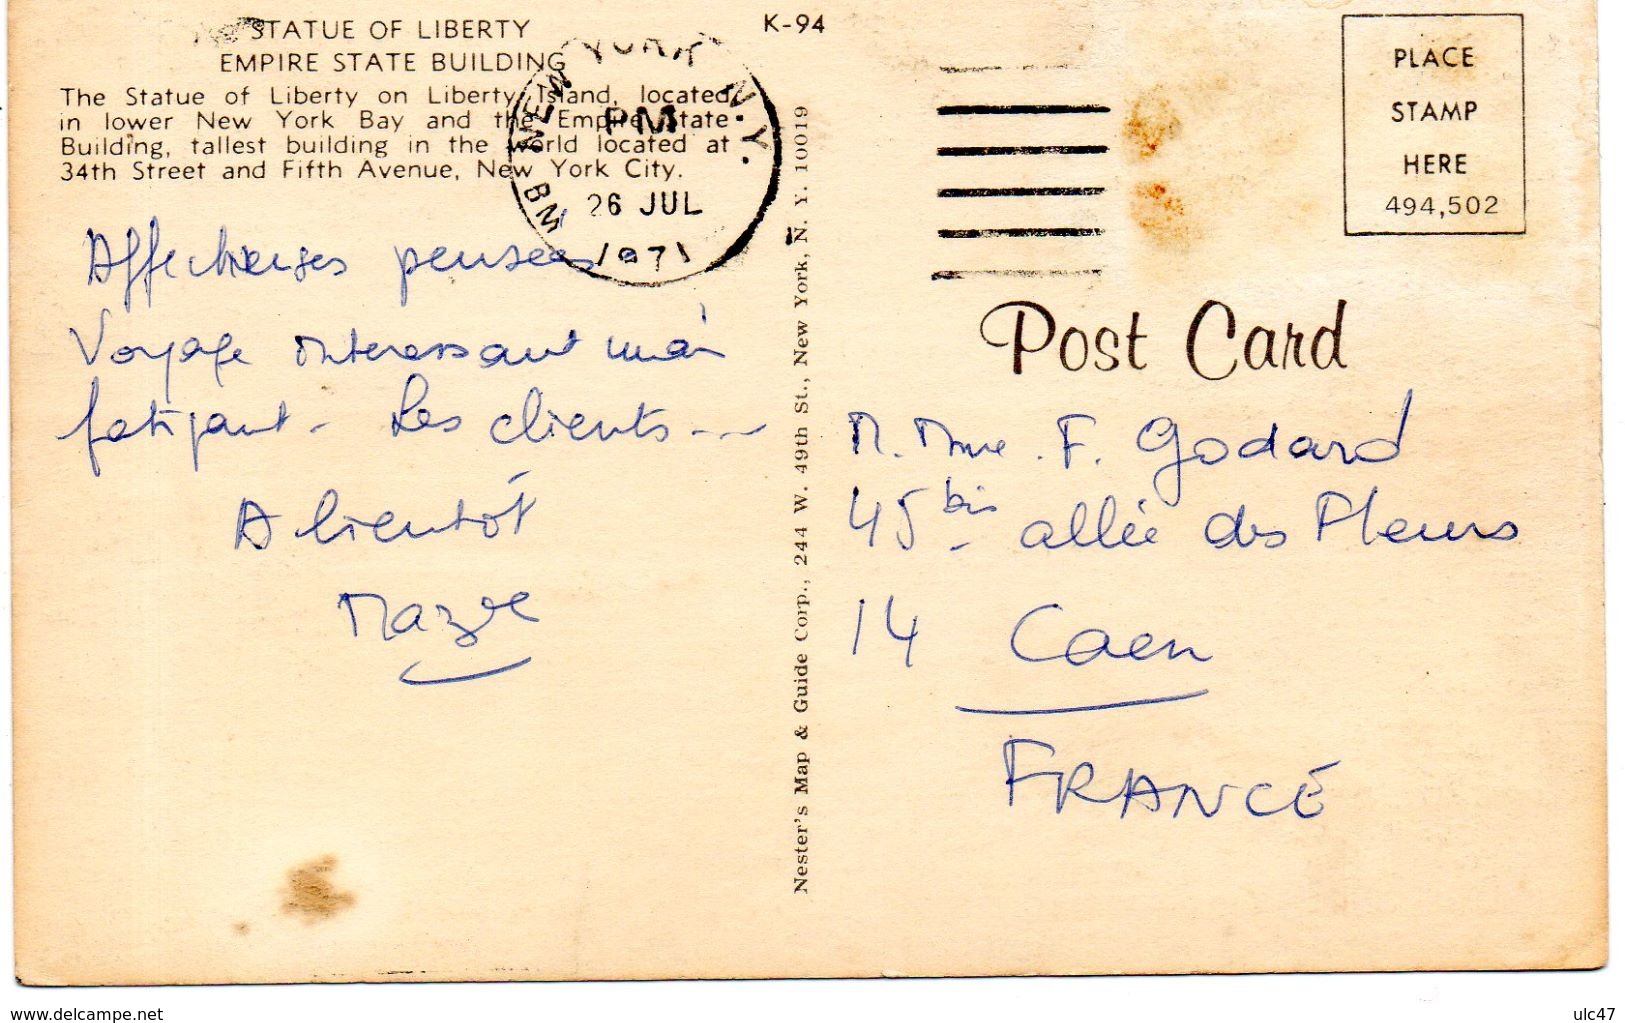 STATUE OF LIBERTY
EMPIRE STATE BUILDING
The Statue of Liberty on Liberty Island, located
in lower New York Bay and the Empire State
Building, tallest building in the world located at
34th Street and Fifth Avenue, New York City.
K-94
NEW YORK, N.Y.
BM
PM
26 JUL
1971
PLACE
STAMP
HERE
494,502
Affectueuses pensées
Voyage interessant mais
fatigant - Les clients ---
A bientôt
Nester's Map & Guide Corp., 244 W. 49th St., New York, N. Y. 10019
Post Card
M. Mme. F. Godard
45 bis - allée des Fleurs
14 Caen
FRANCE
www.delcampe.net
ulc47